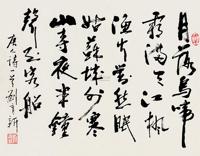 月落烏啼
霜滿天江楓
漁火對愁眠
姑蘇城外寒
山寺夜半鐘
聲到客船
唐詩